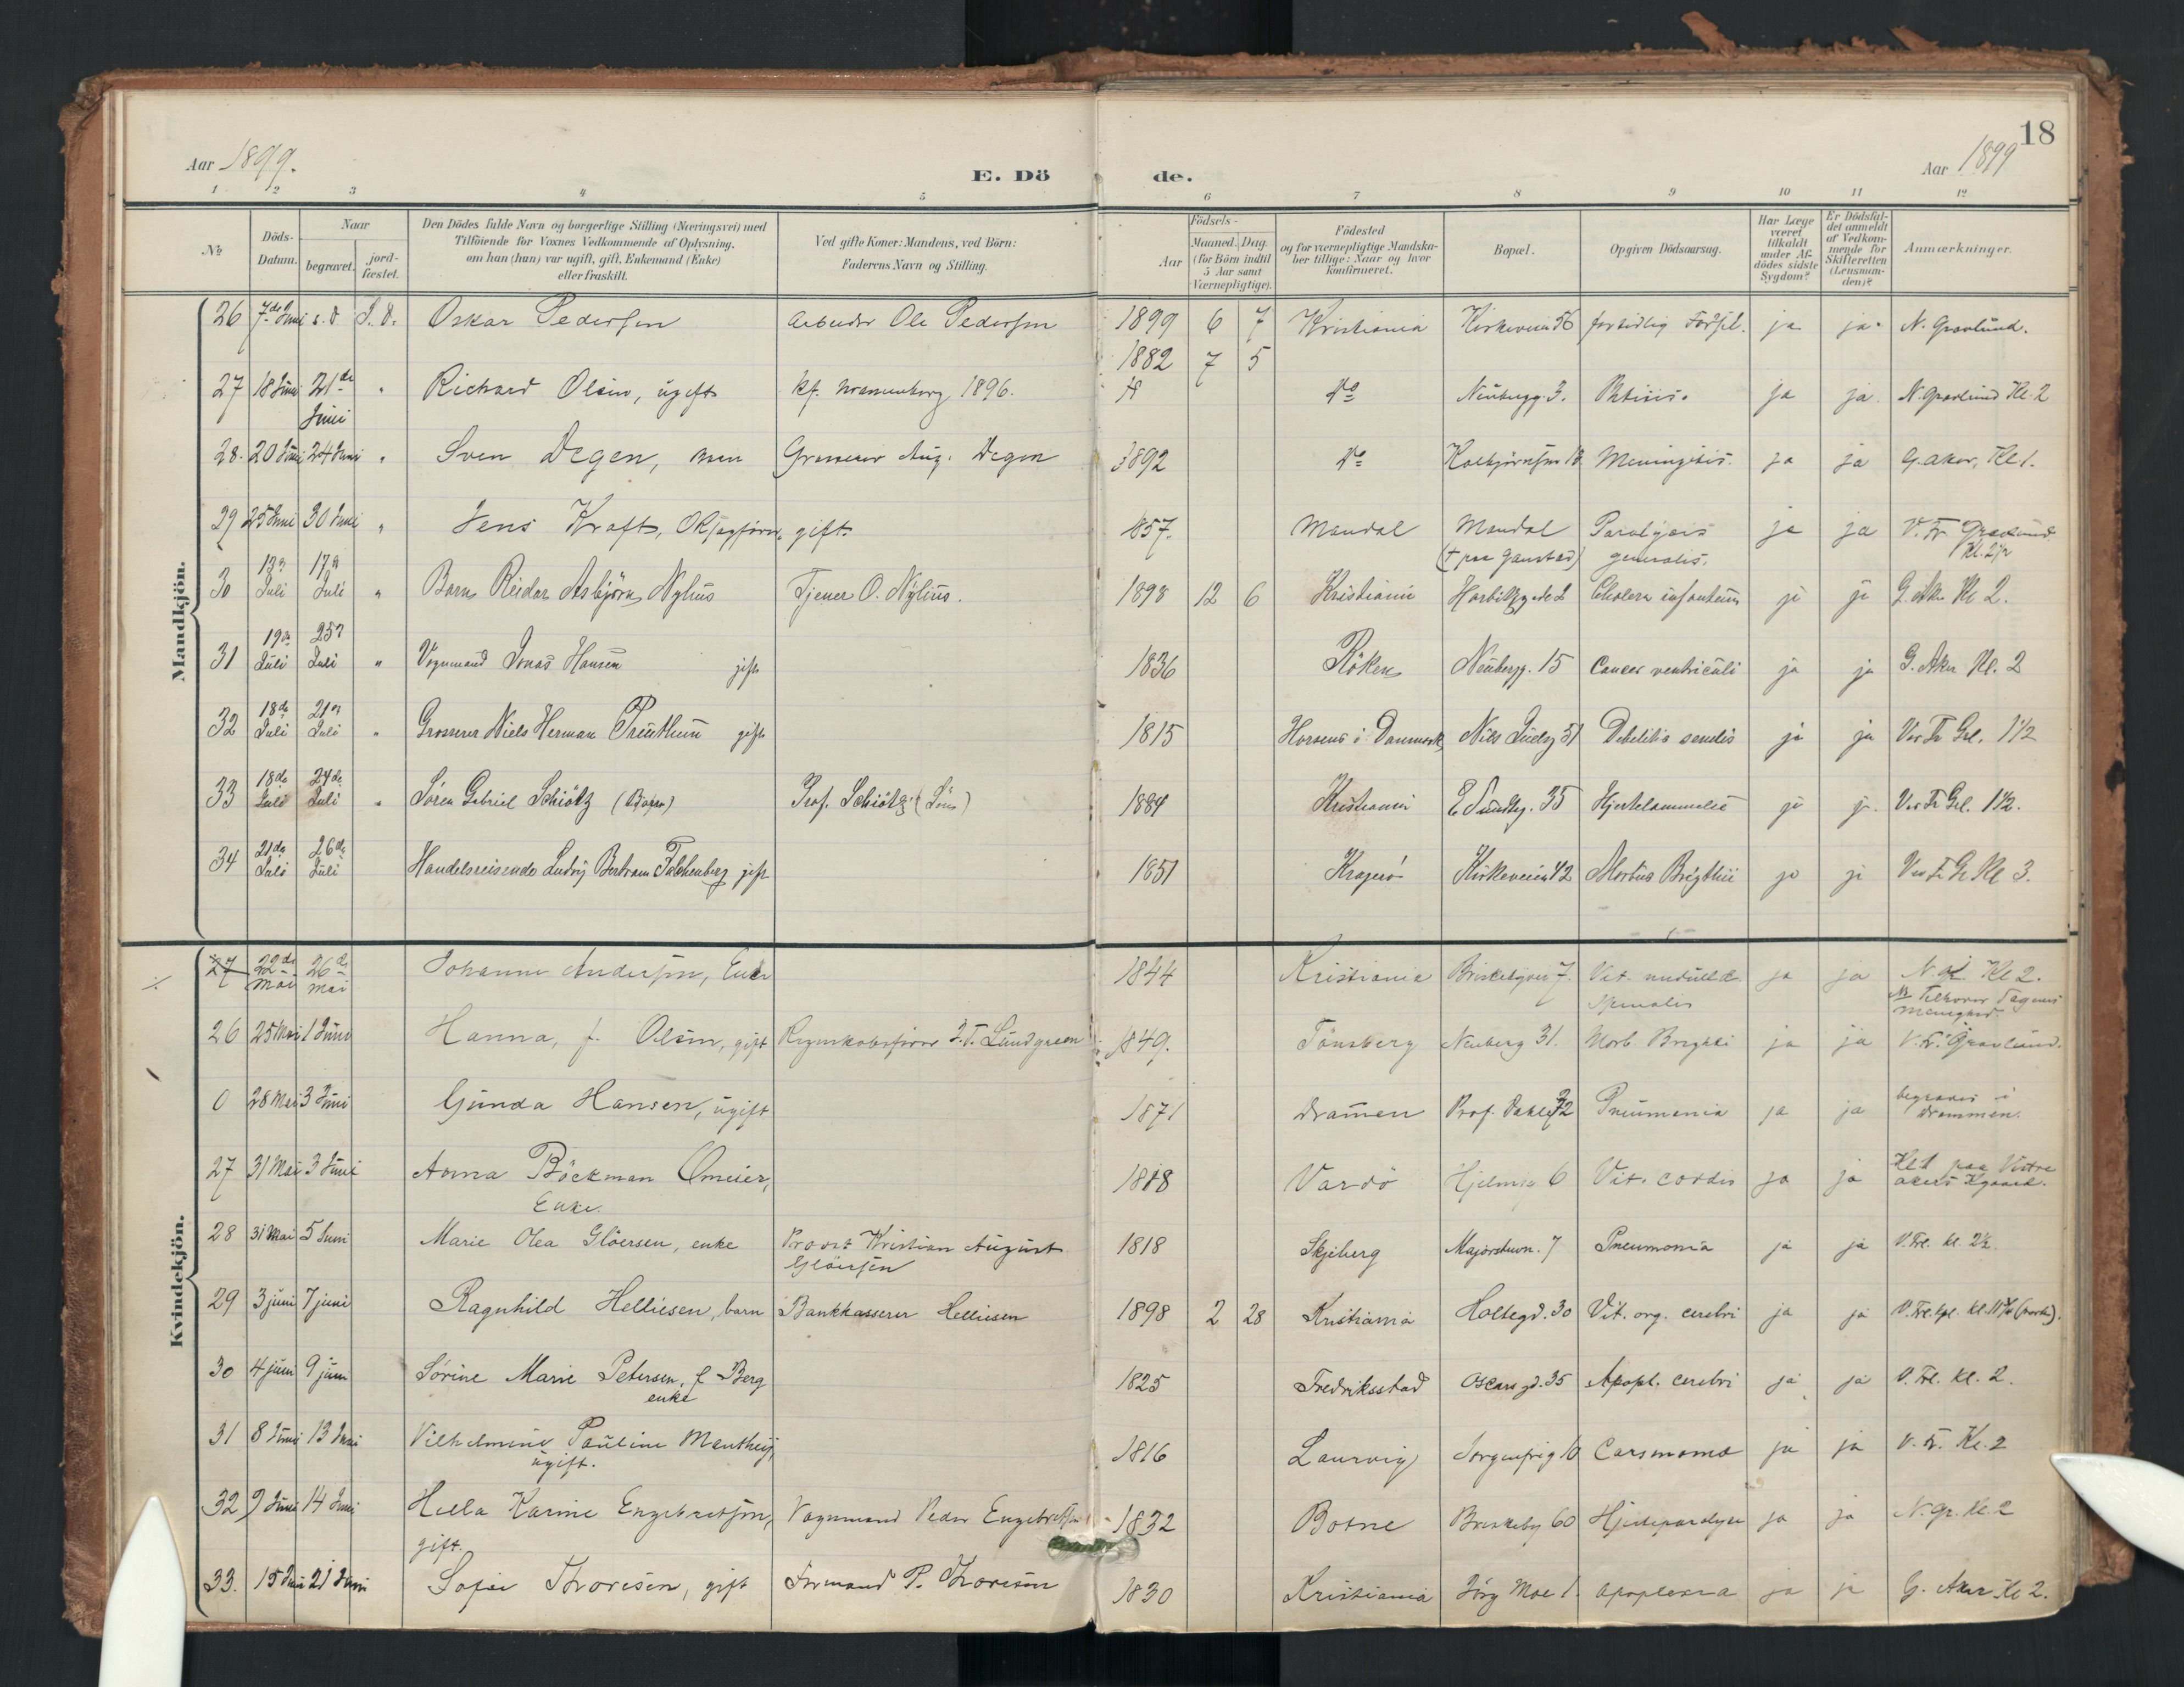 18
Aar 1899.
E. Döde.
Aar 1899
1 2 3 4 5 6 7 8 9 10 11 12
№
Döds-Datum.
Naar
begravet.
jord-fæstet.
Den Dödes fulde Navn og borgerlige Stilling (Næringsvei) med
Tilföiende for Voxnes Vedkommende af Oplysning,
om han (hun) var ugift, gift, Enkemand (Enke)
eller fraskilt.
Ved gifte Koner: Mandens, ved Börn:
Faderens Navn og Stilling.
Födsels-
Aar
Maaned. Dag.
(for Börn indtil
5 Aar samt
Værnepligtige).
Födested
og for værnepligtige Mandska-
ber tillige: Naar og hvor
konfirmeret.
Bopæl.
Opgiven Dödsaarsag.
Har Læge
været
tilkaldt
under Af-
dödes sidste
Sygdom?
Er Dödsfal-
det anmeldt
af Vedkom-
mende for
Skifteretten
(Lensman-
den)?
Anmærkninger.
Mandkjön.
26 7de Juni s. d. S. D. Oskar Pedersen Arbeider Ole Pedersen 1899 6 7 Kristiania Kirkeveien 56 for tidlig Födsel. ja ja. N. Gravlund.
1882 7 5
27 18 Juni 21de Juni " Richard Olsen, ugift kf. 1896. do Neubergg. 3. Phtisis. ja ja. N. Gravlund Kl. 2
28. 20 Juni 24 Juni " Sven Degen, Grosserer Aug. Degen 1892 do Meningitis. ja ja G. Aker, Kl 1.
29 25 Juni 30 Juni " Jens Kraft, gift. 1857. Mandal Mandal Paralysis ja ja V. Fr. Gravlund
(† paa Gaustad) generalis. Kl. 2½
30 Juli 17de Juli " Barn Reidar Asbjörn Nylius Tjener O. Nylius. 1898 12 6 Kristiania Cholera infantum ja ja G. Aker Kl 2.
31 19de Juli 25de Juli " Vognmand Jonas Hansen gift 1836 Röken Neubergg. 15 Cancer ventriculi ja ja G. Aker Kl. 2
32 18de Juli 21de Juli " Grosserer Niels Herman gift 1815 Horsens i Danmark Debilitis senilis ja ja 1½
33 18de Juli 24de Juli " Sören Gabriel Schiötz (Barn) Prof. Schiötz (Sön) 1884 Kristiania E Sundtg. 35 Hjertelammelse ja ja. 1½.
34 21de Juli 26de Juli Handelsreisende Ludvig Bertram Falchenberg gift 1851 Kragerö Kirkeveien 42 Morbus Brigthii ja ja Kl 3.
Kvindekjön.
27 22de Mai 26de Mai Johanne Andersen, Enke 1844 Kristiania Briskebyvei 7. Vit. medullæ ja ja Kl 2.
spinalis
26 25 Mai 1 Juni Hanna, f. Olsen, gift Regnskabsförer Lundgreen 1849. Tönsberg Neuberg 31. Morb Brighti ja ja V. Fr. Gravlund.
0 28 Mai 3 Juni Gunda Hansen, ugift 1871 Drammen Prof. Dahlsg 32 Pneumonia ja ja begraves i
Drammen.
27 31 Mai 3 Juni Anna Böckman Omeier, 1818 Vardö Hjelmsg 6 Vit. cordis ja ja Kl 1 paa Vestre
Enke. Akers Kgaard.
28 31 Mai 5 Juni Marie Olea Glöersen, enke Provst Kristian August 1818 Skjeberg Majorstuvn. 7 Pneumonia ja ja V. Fre. kl. 2½.
Glöersen
29 3 juni 7 juni Ragnhild Helliesen, barn Bankkasserer Helliesen 1898 2 28 Kristiania Holtegd. 30 Vit. org. cerebri ja ja
30 4 juni 9 juni Sörine Marie Petersen, f. Berg 1825 Fredriksstad Oscars gd. 35 Apopl. cerebri ja ja V. Fre. kl. 2.
enke
31 8 Juni 13 Juni Vilhelmine Pauline Manthey, 1816 Laurvig Sorgenfrig 10 Carsinoma ja ja V. Fr. Kl. 2
ugift.
32 9 Juni 14 Juni Hella Karine Engebretsen, Vognmand Peder Engebretsen 1832 Botne Briskeby 60 Hjerteparalyse ja ja N. Gr. Kl. 2
gift.
33. 15 Juni 21 Juni Sofie Thoresen, gift Formand P. Thoresen 1830 Kristiania Jörg Moe 1. Apoplexia ja ja G. Aker Kl 2.